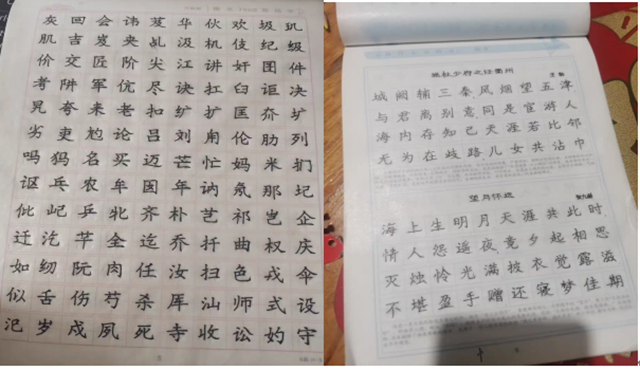 灰回会讳芨华伙欢圾玑
肌吉岌夹乩汲机伎纪级
价交匠阶尖江讲奸件
考阱军伉尽诀扛臼讵决
夸来老扣纩扩匡夼圹
劣吏尥论吕刘甪伦肋列
吗犸名买迈芒忙妈米扪
讴乓农牟年讷氖那圮
仳屺乒牝齐朴艺祁岂企
迁汔芊全迄乔扦曲权庆
如纫阮肉任汝扫色戎伞
似舌伤芍杀厍汕师式设
汜岁戍夙死寺收讼妁守
送杜少府之任蜀州
王勃
城阙辅三秦风烟望五津
与君离别意同是宦游人
海内存知己天涯若比邻
无为在歧路儿女共沾巾
望月怀远
张九龄
海上生明月天涯共此时
情人怨遥夜竟夕起相思
灭烛怜光满披衣觉露滋
不堪盈手赠还寝梦佳期